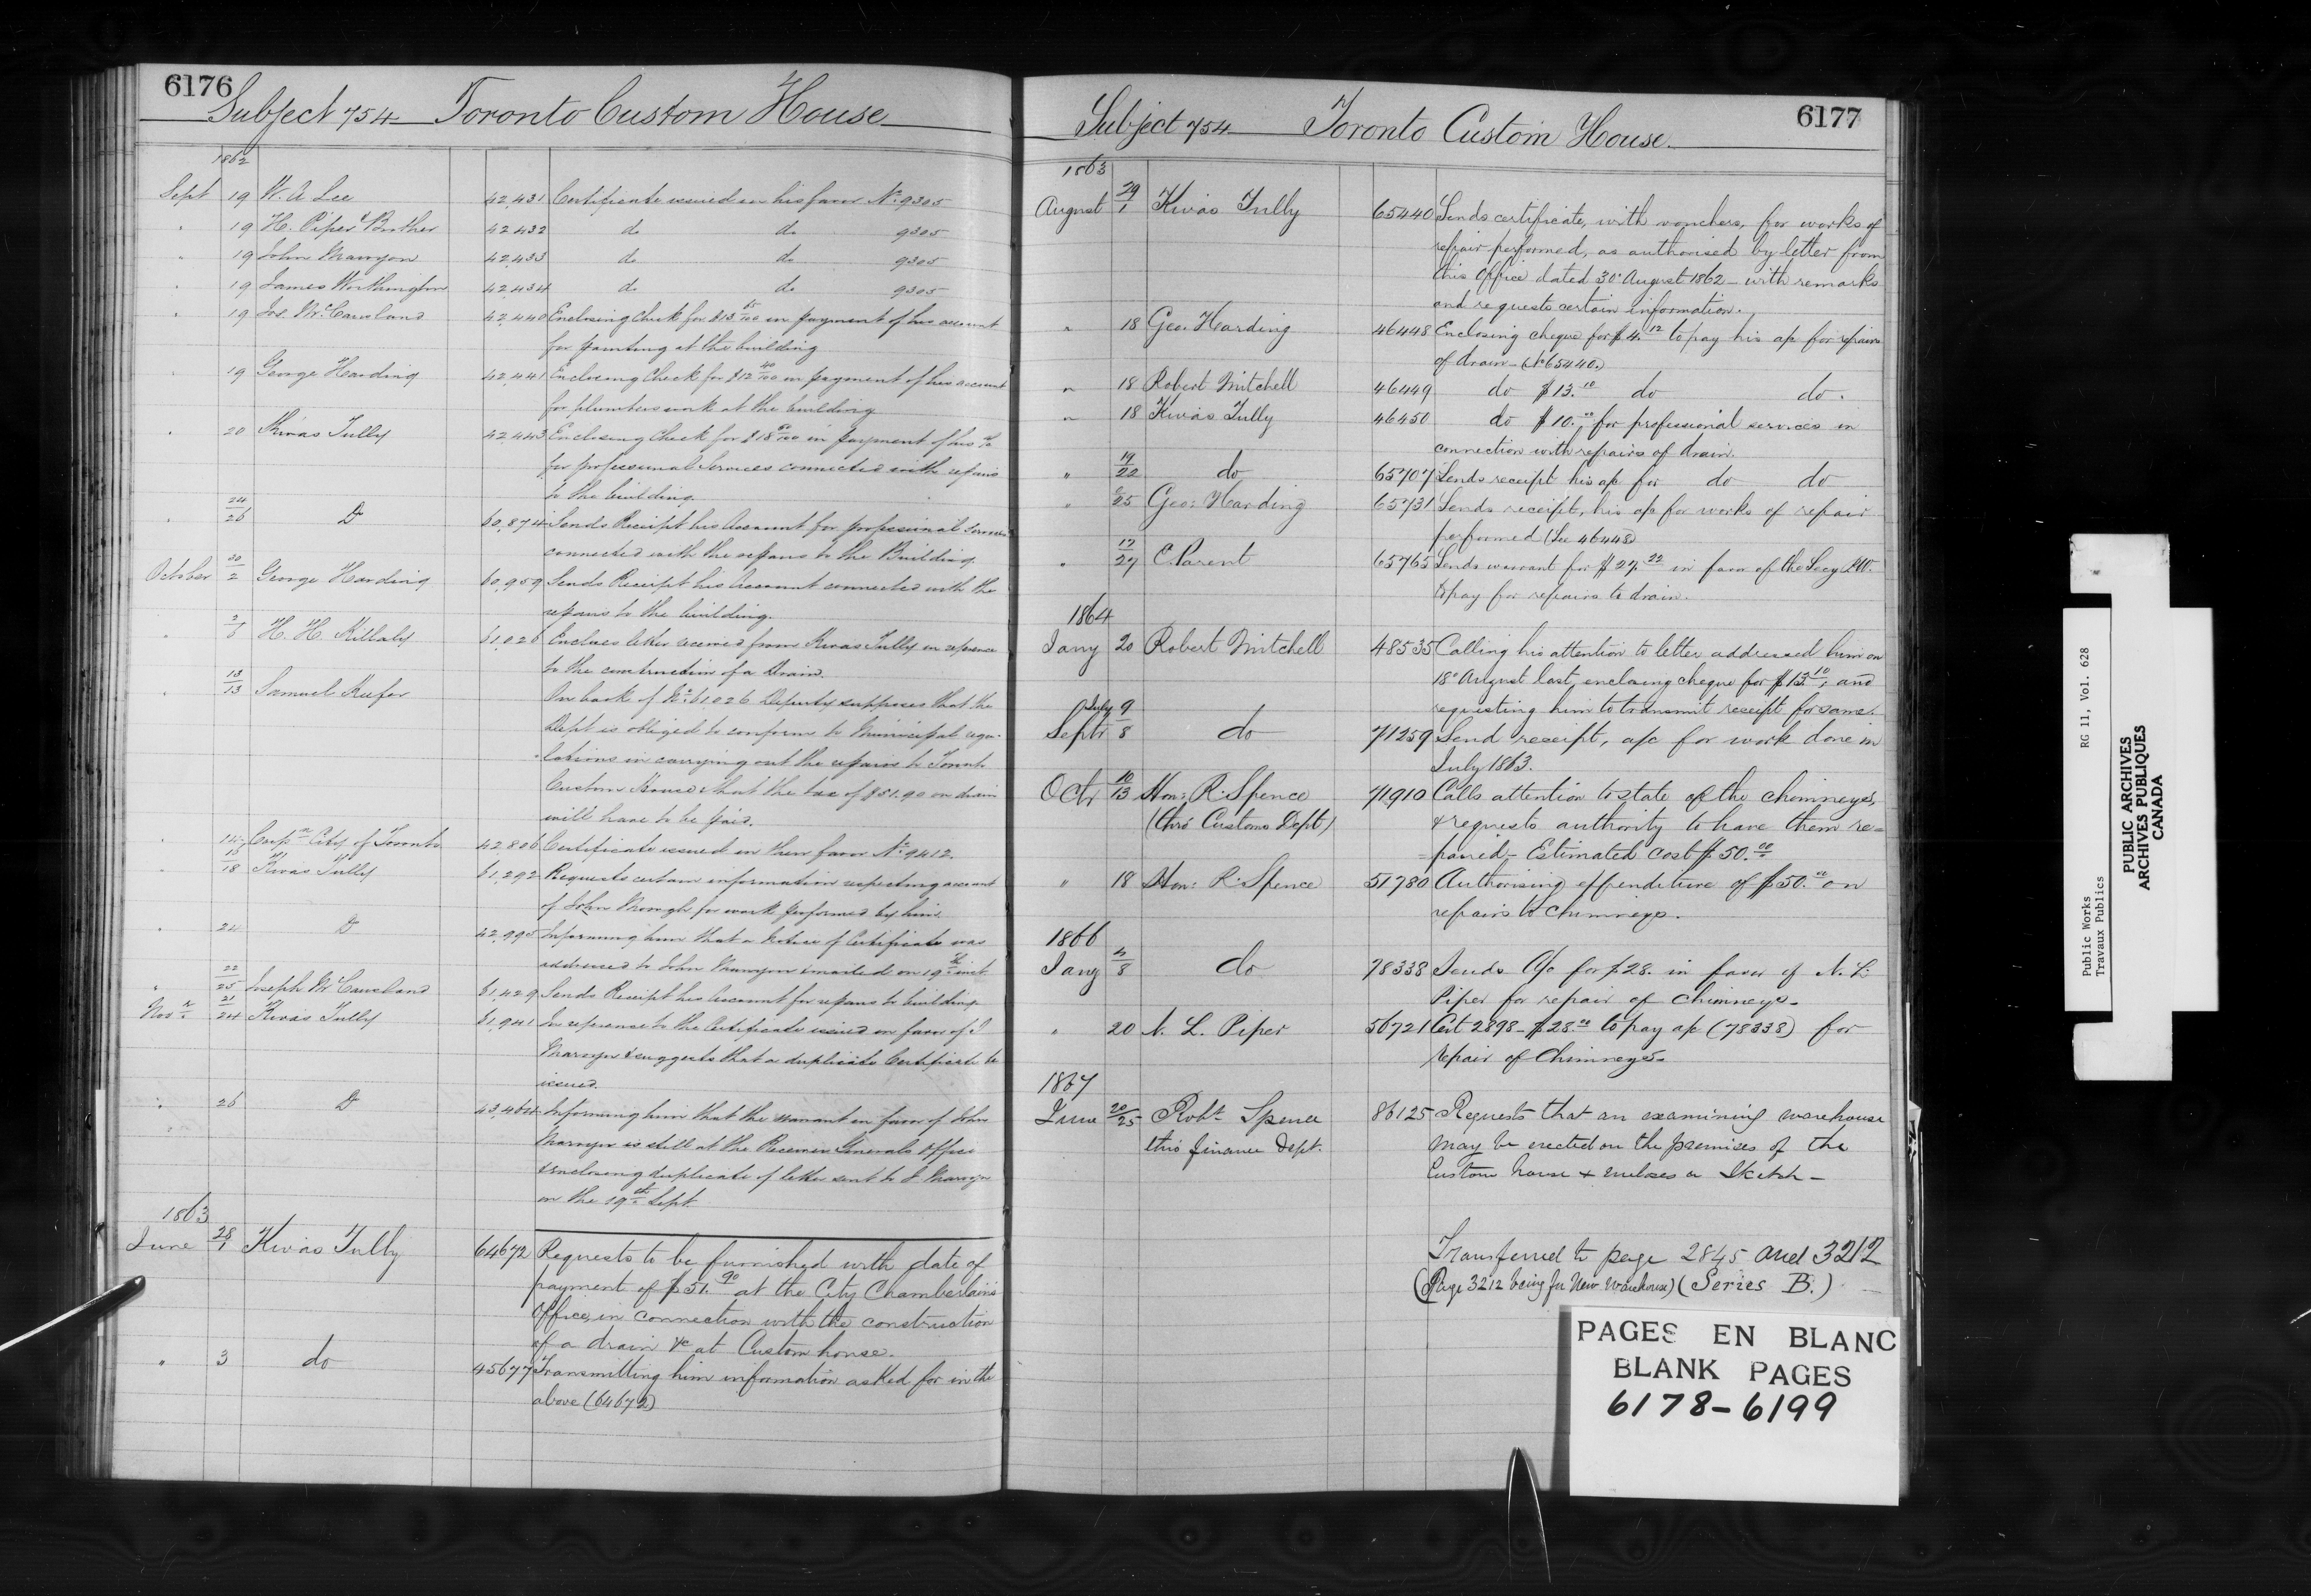 6176
Subject 754 Toronto Custom House
1862
Sept 19 W. A Lee 42,431 Certificate issued in his favor No. 9305
" 19 H. Piper & Brother 42432 do do 9305
" 19 John Mawyon 42433 do do 9305
" 19 James Worthington 42,434 do do 9305
" 19 Jos. McCausland 42,440 Enclosing Check for $13 65/100 in payment of his account
for painting at the building
" 19 George Harding 42,441 Enclosing Check for $12 40/100 in payment of his account
for plumbers work at the building
" 20 Kivas Tully 42,443 Enclosing Check for $18 00/100 in payment of his a/c
for professional Services connected with repairs
to the building.
" 24/26 Do 60,874 Sends Receipt his Account for professional Services
connected with the repairs to the Building
October 30/2 George Harding 60,959 Sends Receipt his Account connected with the
repairs to the building.
" 2/6 H. H. Killaly 61,026 Encloses letter received from Kivas Tully in reference
to the construction of a Drain.
" 13/13 Samuel Keefer On back of No. 61,026 Deputy supposes that the
Dept is obliged to conform to Municipal regu-
lations in carrying out the repairs to Toronto
Custom House & that the tax of $51.90 on drain
will have to be paid.
" 14 Corpn City of Toronto 42806 Certificate issued in their favor No. 9412.
" 15/18 Kivas Tully 61,292 Requests certain information respecting account
of John Morough for work performed by him
" 24 Do 42,995 Informing him that a Notice of Certificate was
addressed to John Mawyon & mailed on 19th inst
" 22/25 Joseph McCausland 61,429 Sends Receipt his Account for repairs to building
Novr 21/24 Kivas Tully 61,941 In reference to the Certificate issued in favor of J
Mawyon & suggests that a duplicate Certificate be
issued.
" 26 Do 43,464 Informing him that the warrant in favor of John
Mawyon is still at the Receiver Generals Office
& enclosing duplicate of letter sent to J Mawyon
on the 19th Sept.
1863
June 28/1 Kivas Tully 64672 Requests to be furnished with date of
payment of $51.90 at the City Chamberlain's
Office, in connection with the construction
of a drain &c at Custom house.
" 3 do 45677 Transmitting him information asked for in the
above (64672)
6177
Subject 754 Toronto Custom House.
1863
August 29/1 Kivas Tully 65440 Sends certificate, with vouchers, for works of
repair performed, as authorised by letter from
this Office dated 30 August 1862 – with remarks
and requests certain information.
" 18 Geo. Harding 46448 Enclosing cheque for $4.12 to pay his a/c for repairs
of drain – (No 65440.)
" 18 Robert Mitchell 46449 do $13.10 do do.
" 18 Kivas Tully 46450 do $10.00 for professional services in
connection with repairs of drain.
" 19/22 do 65707 Sends receipt his a/c for do do
" /25 Geo: Harding 65731 Sends receipt, his a/c for works of repair
performed (See 46448)
" 17/27 E. Parent 65765 Sends warrant for $27.22 in favor of the Secy P.W.
to pay for repairs to drain.
1864
Jany 20 Robert Mitchell 48535 Calling his attention to letter addressed him on
18 August last, enclosing cheque for $13.10, and
requesting him to transmit receipt for same.
July 9
Septr 8 do 71259 Send receipt, a/c for work done in
July 1863.
Octr 10/13 Hon: R. Spence 71910 Calls attention to state of the chimneys,
(thro' Customs Dept) & requests authority to have them re=
=paired – Estimated cost $50.00
" 18 Hon: R. Spence 51780 Authorising expenditure of $50.00 on
repairs to chimneys.
1866
Jany 4/8 do 78338 Sends A/c for $28. in favor of N. L.
Piper for repair of Chimneys –
" 20 N. L. Piper 56721 Cert 2898 – $28.00 to pay a/c (78338) for
repair of Chimneys –
1867
June 20/25 Robt. Spence 86125 Requests that an examining warehouse
thro' finance Dept. may be erected on the premises of the
Custom house & encloses a Sketch –
Transferred to page 2845 and 3212
(Page 3212 being for New Warehouse) (Series B.)
PAGES EN BLANC
BLANK PAGES
6178–6199
Public Works
Travaux Publics
RG 11, Vol. 628
PUBLIC ARCHIVES
ARCHIVES PUBLIQUES
CANADA